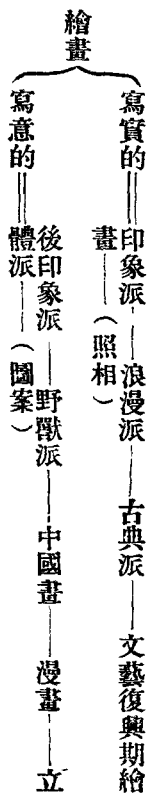 繪畫
寫實的＝＝印象派——浪漫派——古典派——文藝復興期繪
畫——（照相）
寫意的＝＝後印象派——野獸派——中國畫——漫畫——立
體派——（圖案）